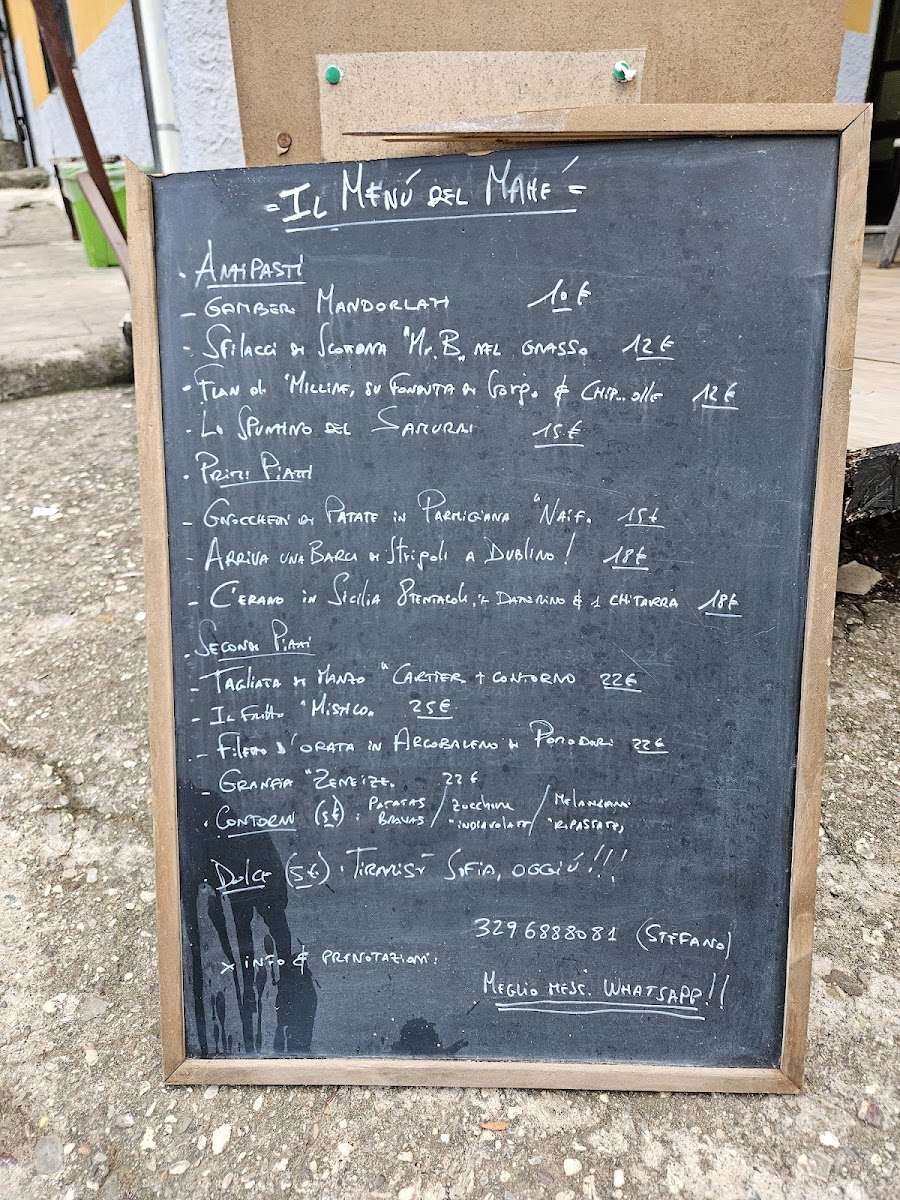 = Il Menú del Mahé =
· Antipasti
- Gamberi Mandorlati 10 €
· Sfilacci di Scottona "Mr. B" nel grasso 12 €
· Flan di "Milline" su fonduta di Gorg. & Chip... olle 12 €
· Lo Spuntino del Samurai 15 €
· Primi Piatti
- Gnoccheth di Patate in Parmigiana "Naif" 15 €
- Arriva una Barca di Stripoli a Dublino! 18 €
- C'erano in Sicilia 8 tentacoli, 1 Datterino & 1 chitarra 18 €
· Secondi Piatti
- Tagliata di Manzo "Cartier" + contorno 22 €
- Il Fritto "Mistico" 25 €
- Filetto d'orata in Arcobaleno di Pomodori 22 €
- Granfia "Zeneize" 22 €
· Contorni (5 €) : Patatas Bravas / Zucchine "indiavolate" / Melanzane "ripastate"
· Dolce (5 €) · Tirmisù Sofia, oggiù!!!
3296888081 (Stefano)
x info & prenotazioni:
Meglio mess. WhatsApp!!